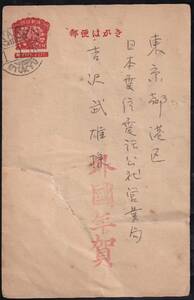 郵便はがき
東京都港区
日本電信電話公社営業局
吉沢武雄様
外國年賀